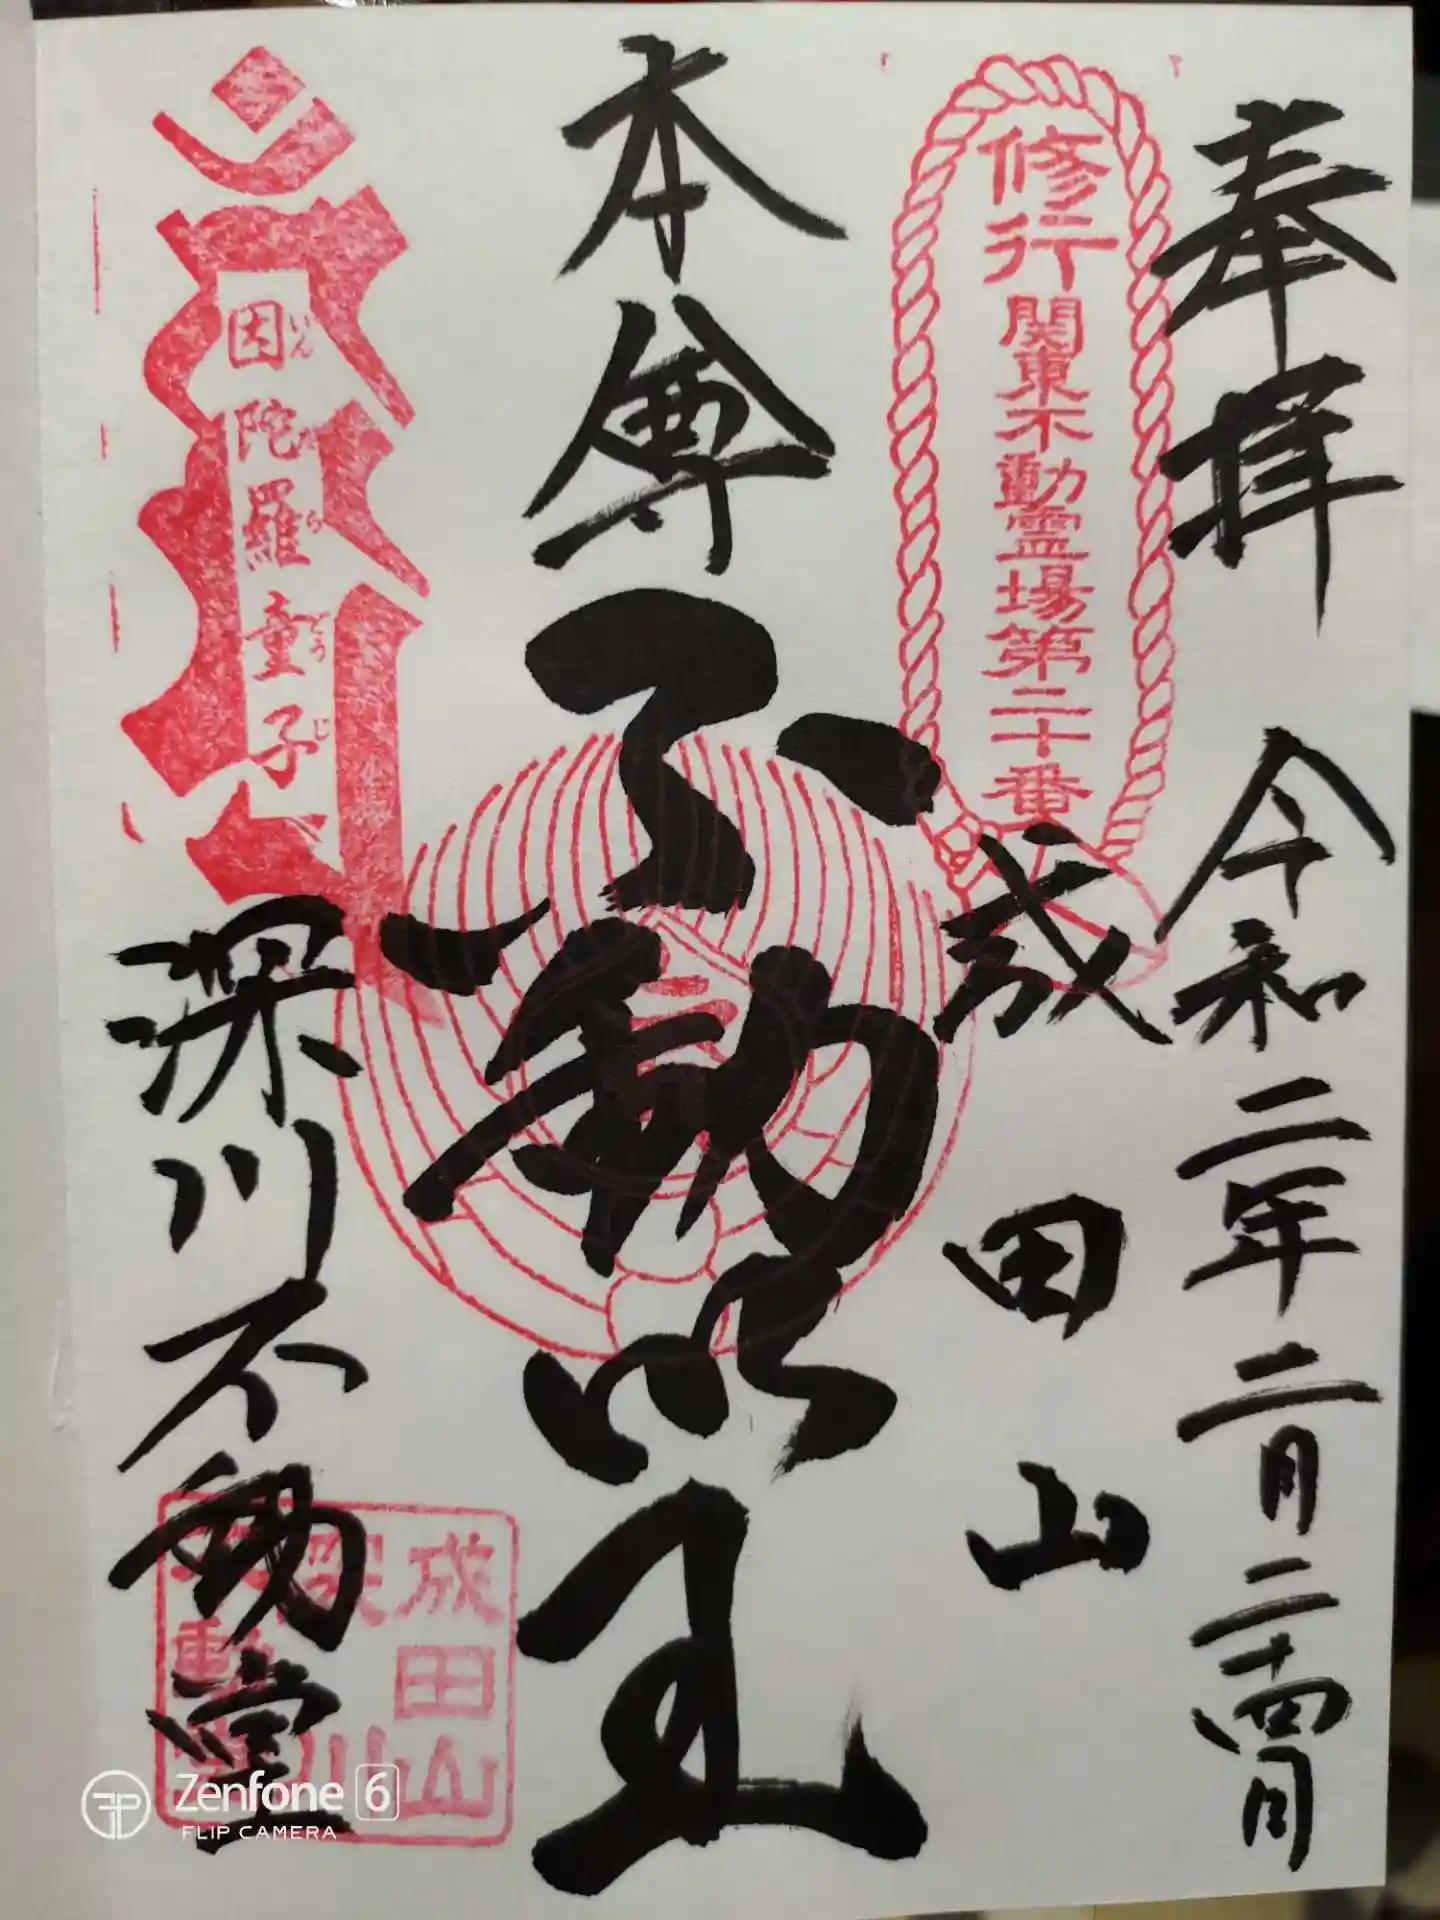 奉拝
令和二年二月二十四日
修行
関東不動霊場第二十番
成田山
本尊
不動明王
因陀羅童子
いん
ら
どうじ
深川不動堂
成田山
Zenfone 6
FLIP CAMERA